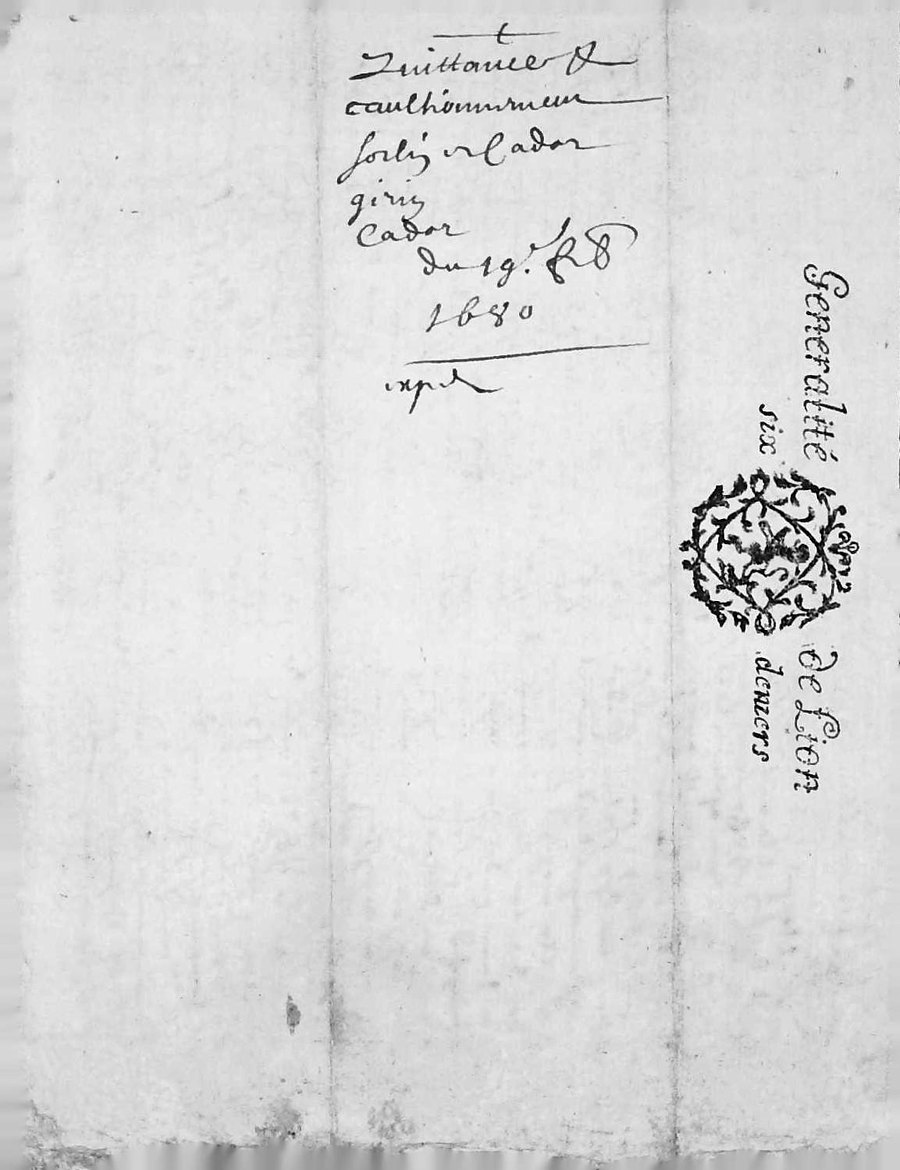 Quittance &
caulhionnement
sorlin et Cador
girin
Cador
du 19e.
1680
expde
Generalité de Lion
six deniers